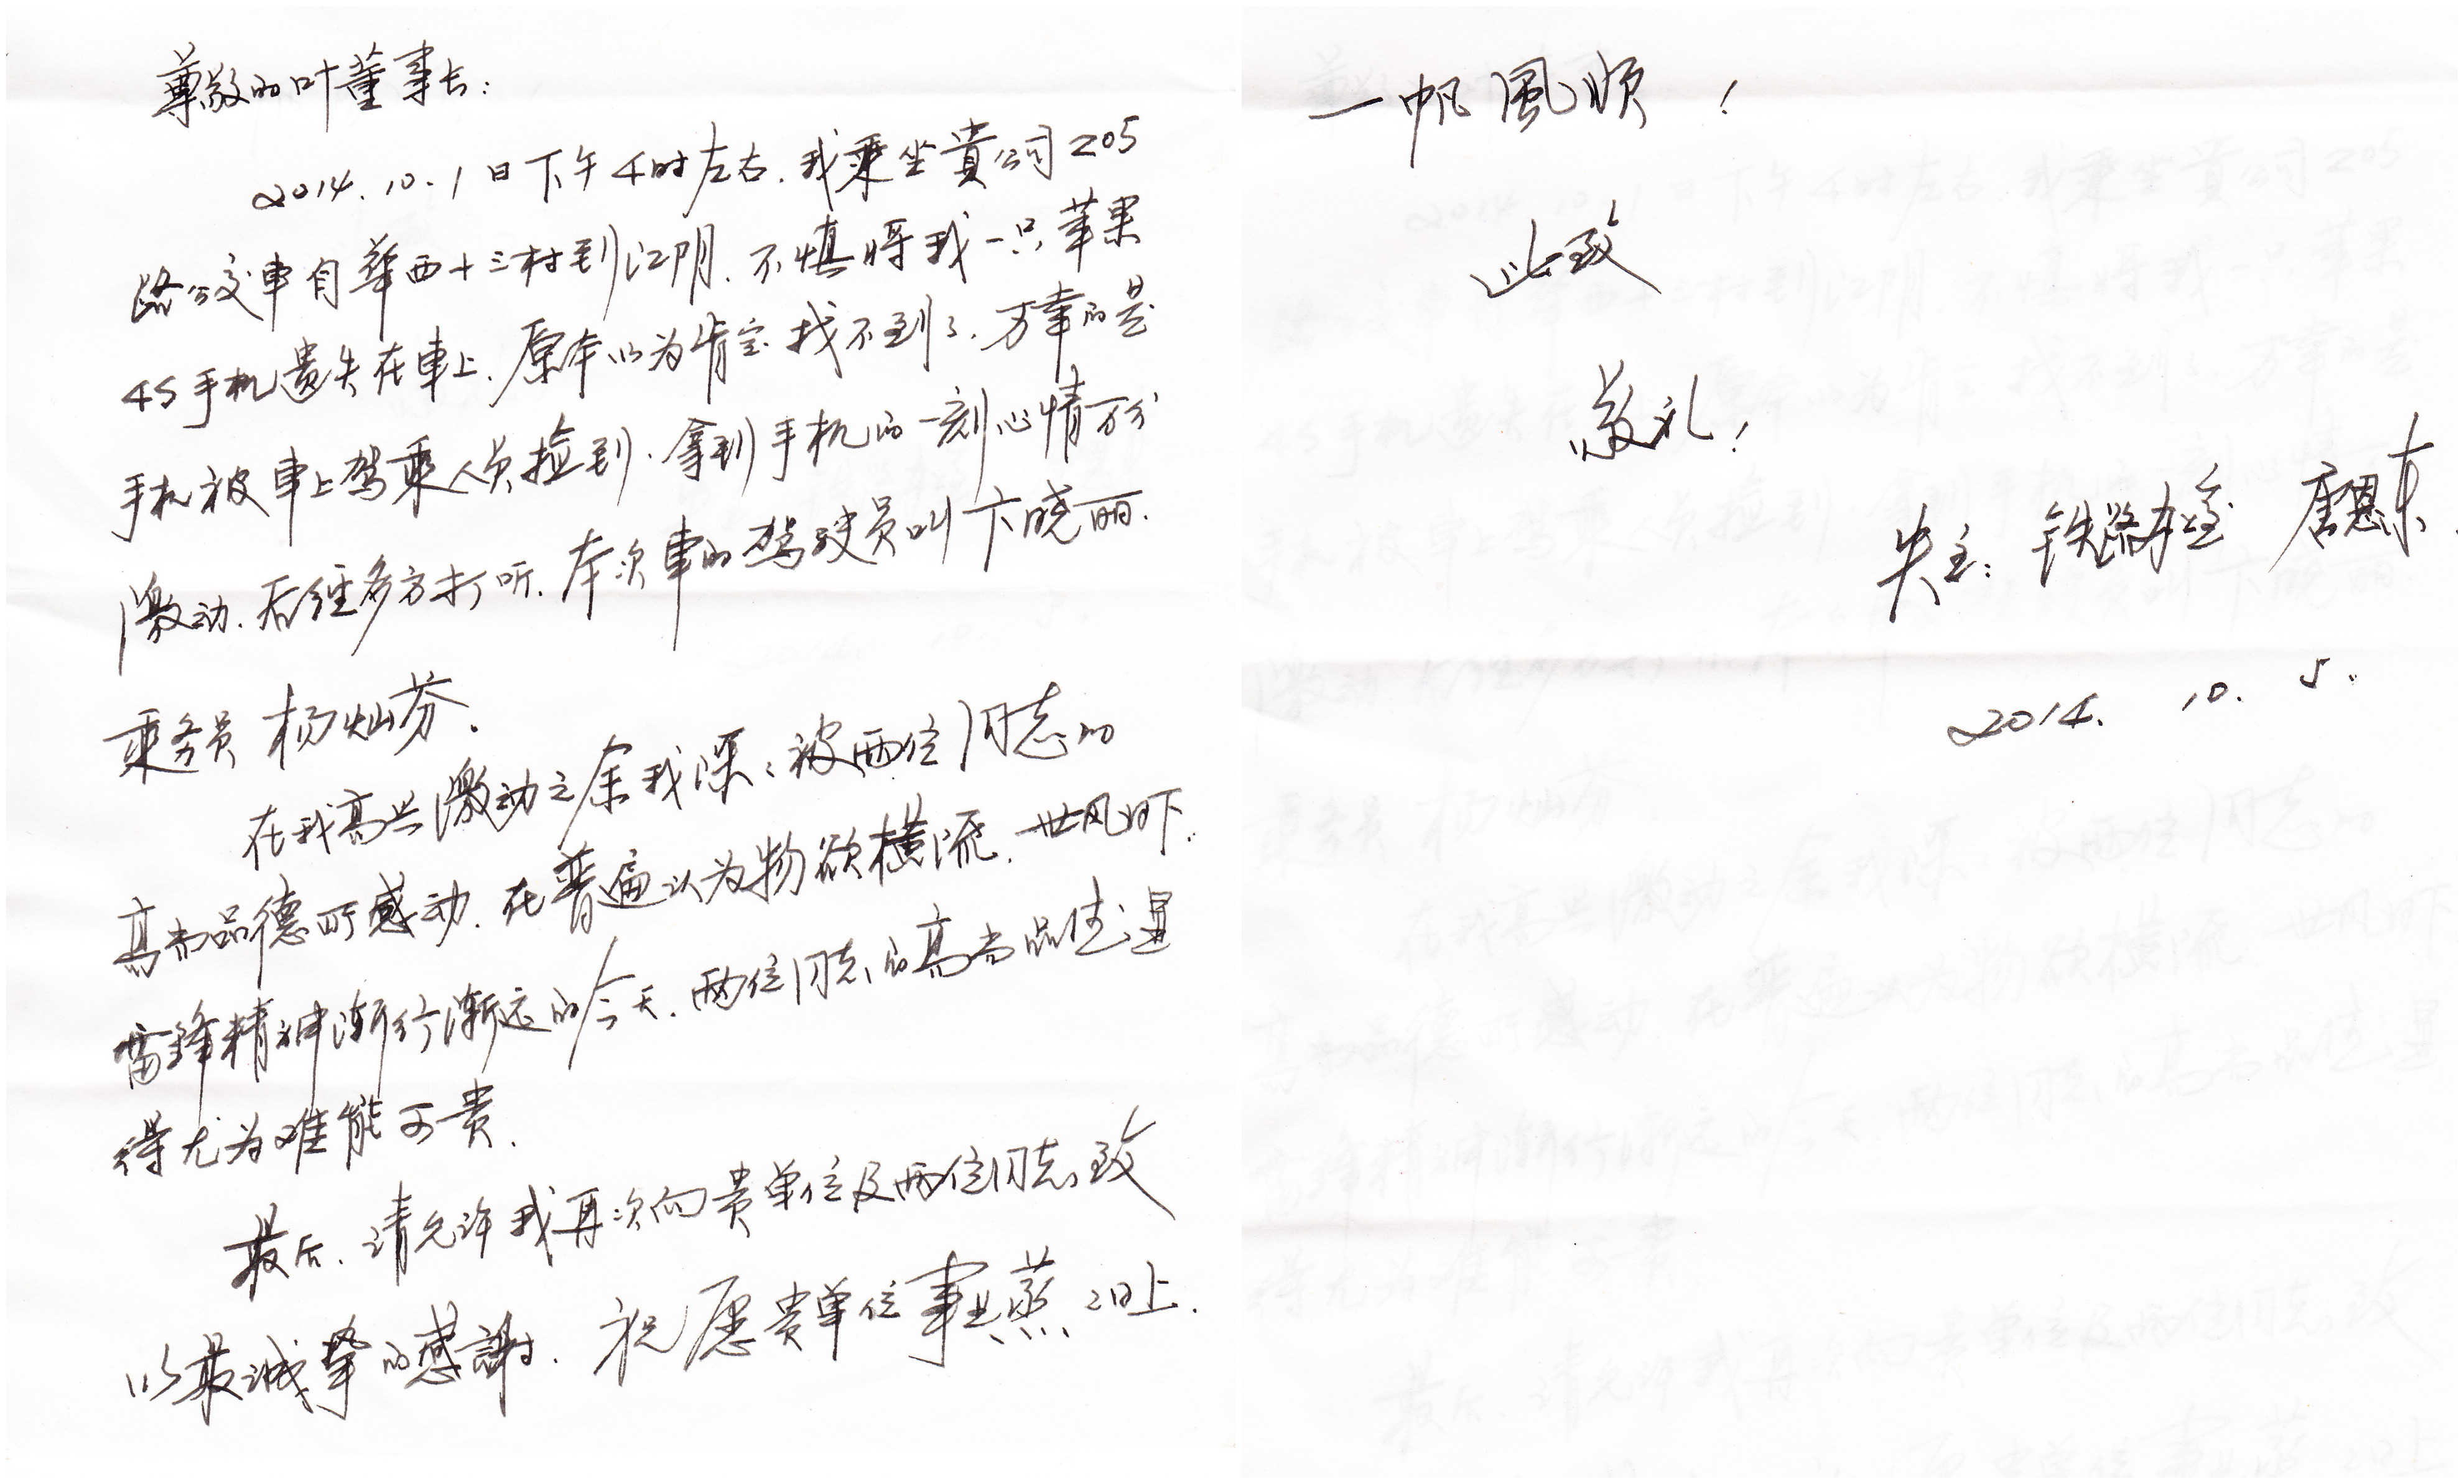 尊敬的叶董事长：
2014.10.1日下午4时左右.我乘坐貴公司205
路公交車自華西十三村到江阴.不慎將我一只苹果
4S手机遗失在車上.原本以为肯定找不到了.万幸的是
手机被車上驾乘人员捡到.拿到手机的一刻心情万分
激动.后经多方打听.本次車的驾驶员叫卞晓丽.
乘务员杨灿芬。
在我高兴激动之余我深深被两位同志的
高尚品德所感动.在普遍认为物欲横流.世风日下.
雷鋒精神渐行渐远的今天.两位同志的高尚品德显
得尤为难能可贵.
最后.请允许我再次向贵单位及两位同志致
以最诚挚的感謝.祝愿贵单位事业蒸蒸日上.
一帆風顺！
此致
敬礼！
失主：铁路 唐恩东.
2014. 10. 5.